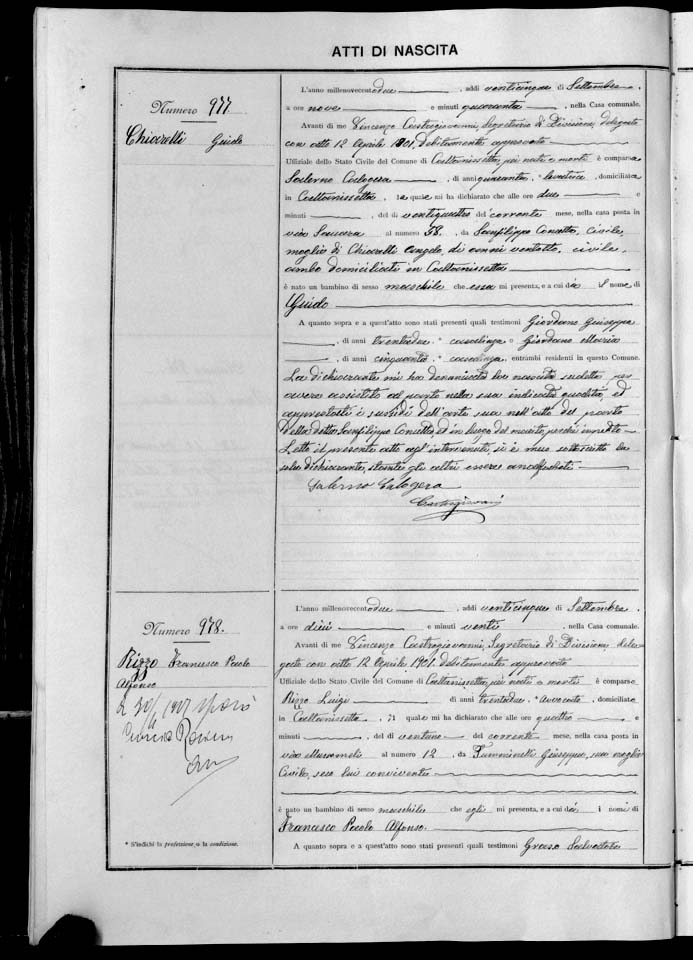 ATTI DI NASCITA
Numero 977
Chiarelli Guido
L'anno millenovecentodue, addì venticinque di Settembre,
a ore nove e minuti quaranta, nella Casa comunale.
Avanti di me Vincenzo Castrogiovanni, Segretario di Divisione, delegato
con atto 12 Aprile 1901, debitamente approvato
Uffiziale dello Stato Civile del Comune di Caltanissetta, per nati e morti è comparsa
Salerno Calogera, di anni quaranta, * levatrice, domiciliata
in Caltanissetta, la quale mi ha dichiarato che alle ore due e
minuti, del dì ventiquattro del corrente mese, nella casa posta in
via al numero 58, da Sanfilippo Concetta, Civile,
moglie di Chiarelli Angelo, di anni ventotto, civile,
ambo domiciliati in Caltanissetta
è nato un bambino di sesso maschile che essa mi presenta, e a cui dà il nome di
Guido
A quanto sopra e a quest'atto sono stati presenti quali testimoni Giordano Giuseppa
, di anni trentadue, * casalinga e Giordano Maria
, di anni cinquanta * casalinga, entrambi residenti in questo Comune.
La dichiarante mi ha denunciato la nascita sudetta per
avere assistito al parto nella sua indicata qualità, ed
apprestati i sussidi dell'arte sua nell'atto del parto
della detta Sanfilippo Concetta, ed in luogo del marito, perchè impedito
Letto il presente atto agl'intervenuti, si è meco sottoscritta la
sola dichiarante, stante gli altri essere analfabeti
Salerno Calogera
Castrogiovanni
Numero 978.
Rizzo Francesco Paolo
Alfonso
L'anno millenovecentodue, addì venticinque di Settembre,
a ore dieci e minuti venti, nella Casa comunale.
Avanti di me Vincenzo Castrogiovanni, Segretario di Divisione, dele-
gato con atto 12 Aprile 1901. debitamente approvato
Uffiziale dello Stato Civile del Comune di Caltanissetta, per nati e morti è comparso
Rizzo Luigi, di anni trentadue * Avvocato, domiciliato
in Caltanissetta, il quale mi ha dichiarato che alle ore quattro e
minuti, del dì ventuno del corrente mese, nella casa posta in
via Mussomeli al numero 12, da Tumminelli Giuseppa, sua moglie
Civile, seco lui convivente
è nato un bambino di sesso maschile che egli mi presenta, e a cui dà i nomi di
Francesco Paolo Alfonso.
A quanto sopra e a quest'atto sono stati presenti quali testimoni Grasso Salvatore
* S'indichi la professione o la condizione.